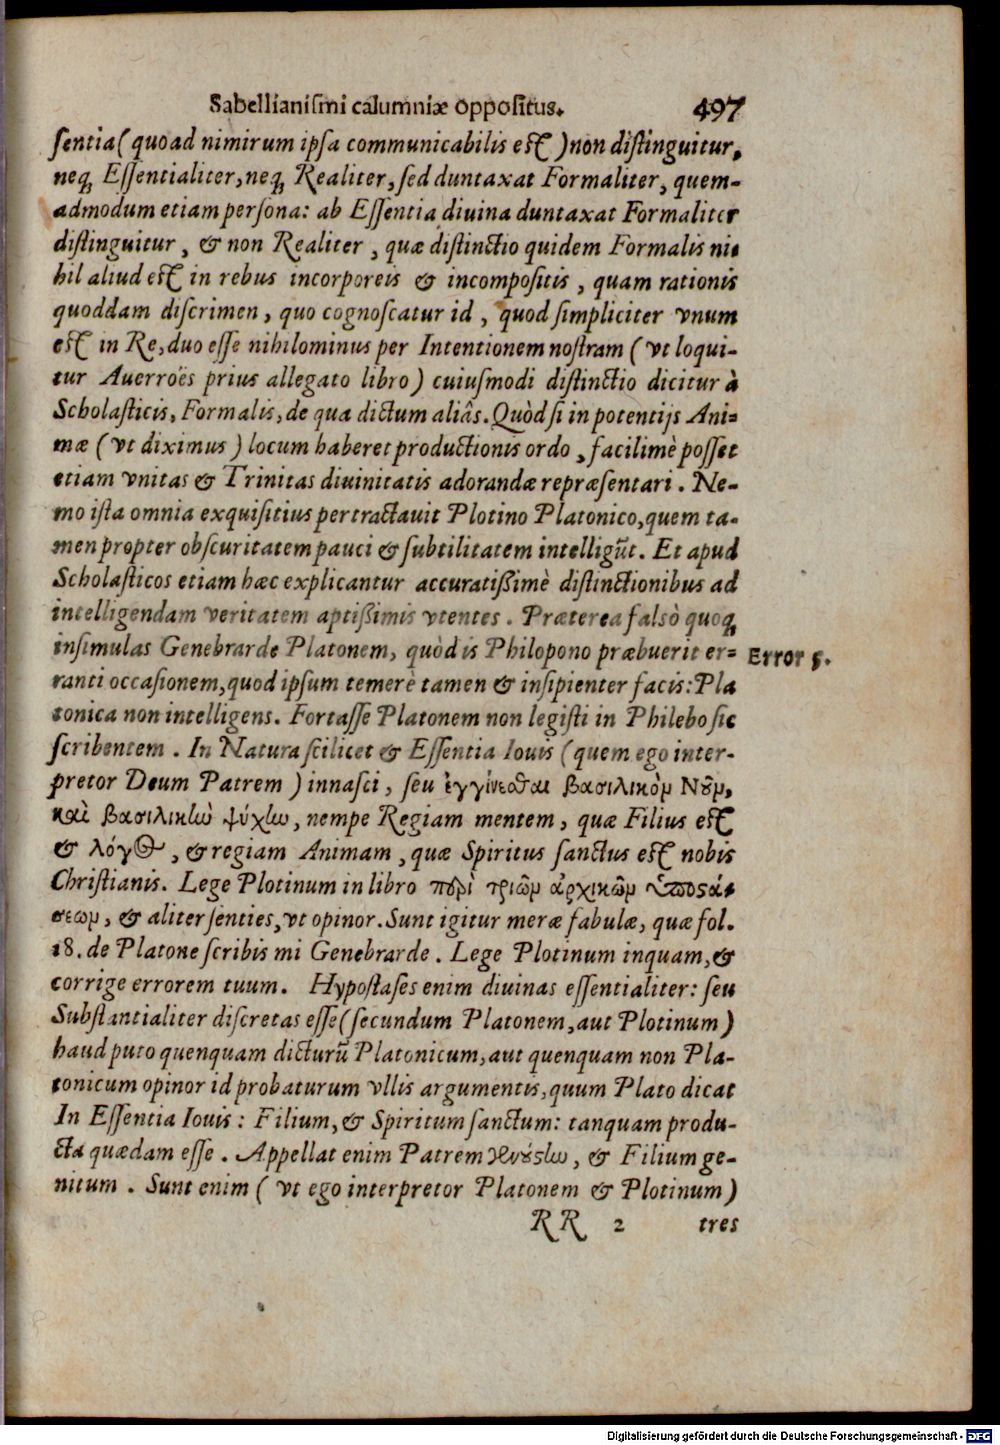 Sabellianismi calumniæ oppositus. 497
sentia (quoad nimirum ipsa communicabilis est) non distinguitur,
neq; Essentialiter, neq; Realiter, sed duntaxat Formaliter, quem-
admodum etiam persona: ab Essentia diuina duntaxat Formaliter
distinguitur, & non Realiter, quæ distinctio quidem Formalis ni-
hil aliud est in rebus incorporeis & incompositis, quam rationis
quoddam discrimen, quo cognoscatur id, quod simpliciter vnum
est in Re, duo esse nihilominus per Intentionem nostram (vt loqui-
tur Auerroës prius allegato libro) cuiusmodi distinctio dicitur à
Scholasticis, Formalis, de qua dictum aliâs. Quòd si in potentijs Ani-
mæ (vt diximus) locum haberet productionis ordo, facilimè posset
etiam vnitas & Trinitas diuinitatis adorandæ repræsentari. Ne-
mo ista omnia exquisitius pertractauit Plotino Platonico, quem ta-
men propter obscuritatem pauci & subtilitatem intelligũt. Et apud
Scholasticos etiam hæc explicantur accuratißimè distinctionibus ad
intelligendam veritatem aptißimis vtentes. Præterea falsò quoq;
insimulas Genebrarde Platonem, quòd is Philopono præbuerit er-
Error 5.
ranti occasionem, quod ipsum temerè tamen & insipienter facis: Pla
tonica non intelligens. Fortasse Platonem non legisti in Philebo sic
scribentem. In Natura scilicet & Essentia Iouis (quem ego inter-
pretor Deum Patrem) innasci, seu ἐγγίνεσθαι βασιλικὸμ Νοῦμ,
καὶ βασιλικὼ ψύχω, nempe Regiam mentem, quæ Filius est
& λόγος, & regiam Animam, quæ Spiritus sanctus est nobis
Christianis. Lege Plotinum in libro περὶ τριῶμ ἀρχικῶμ ὑποστά-
σεωμ, & aliter senties, vt opinor. Sunt igitur meræ fabulæ, quæ fol.
18. de Platone scribis mi Genebrarde. Lege Plotinum inquam, &
corrige errorem tuum. Hypostases enim diuinas essentialiter: seu
Substantialiter discretas esse (secundum Platonem, aut Plotinum)
haud puto quenquam dicturũ Platonicum, aut quenquam non Pla-
tonicum opinor id probaturum vllis argumentis, quum Plato dicat
In Essentia Iouis: Filium, & Spiritum sanctum: tanquam produ-
cta quædam esse. Appellat enim Patrem γενούστω, & Filium ge-
nitum. Sunt enim (vt ego interpretor Platonem & Plotinum)
RR 2 tres
Digitalisierung gefördert durch die Deutsche Forschungsgemeinschaft - DFG